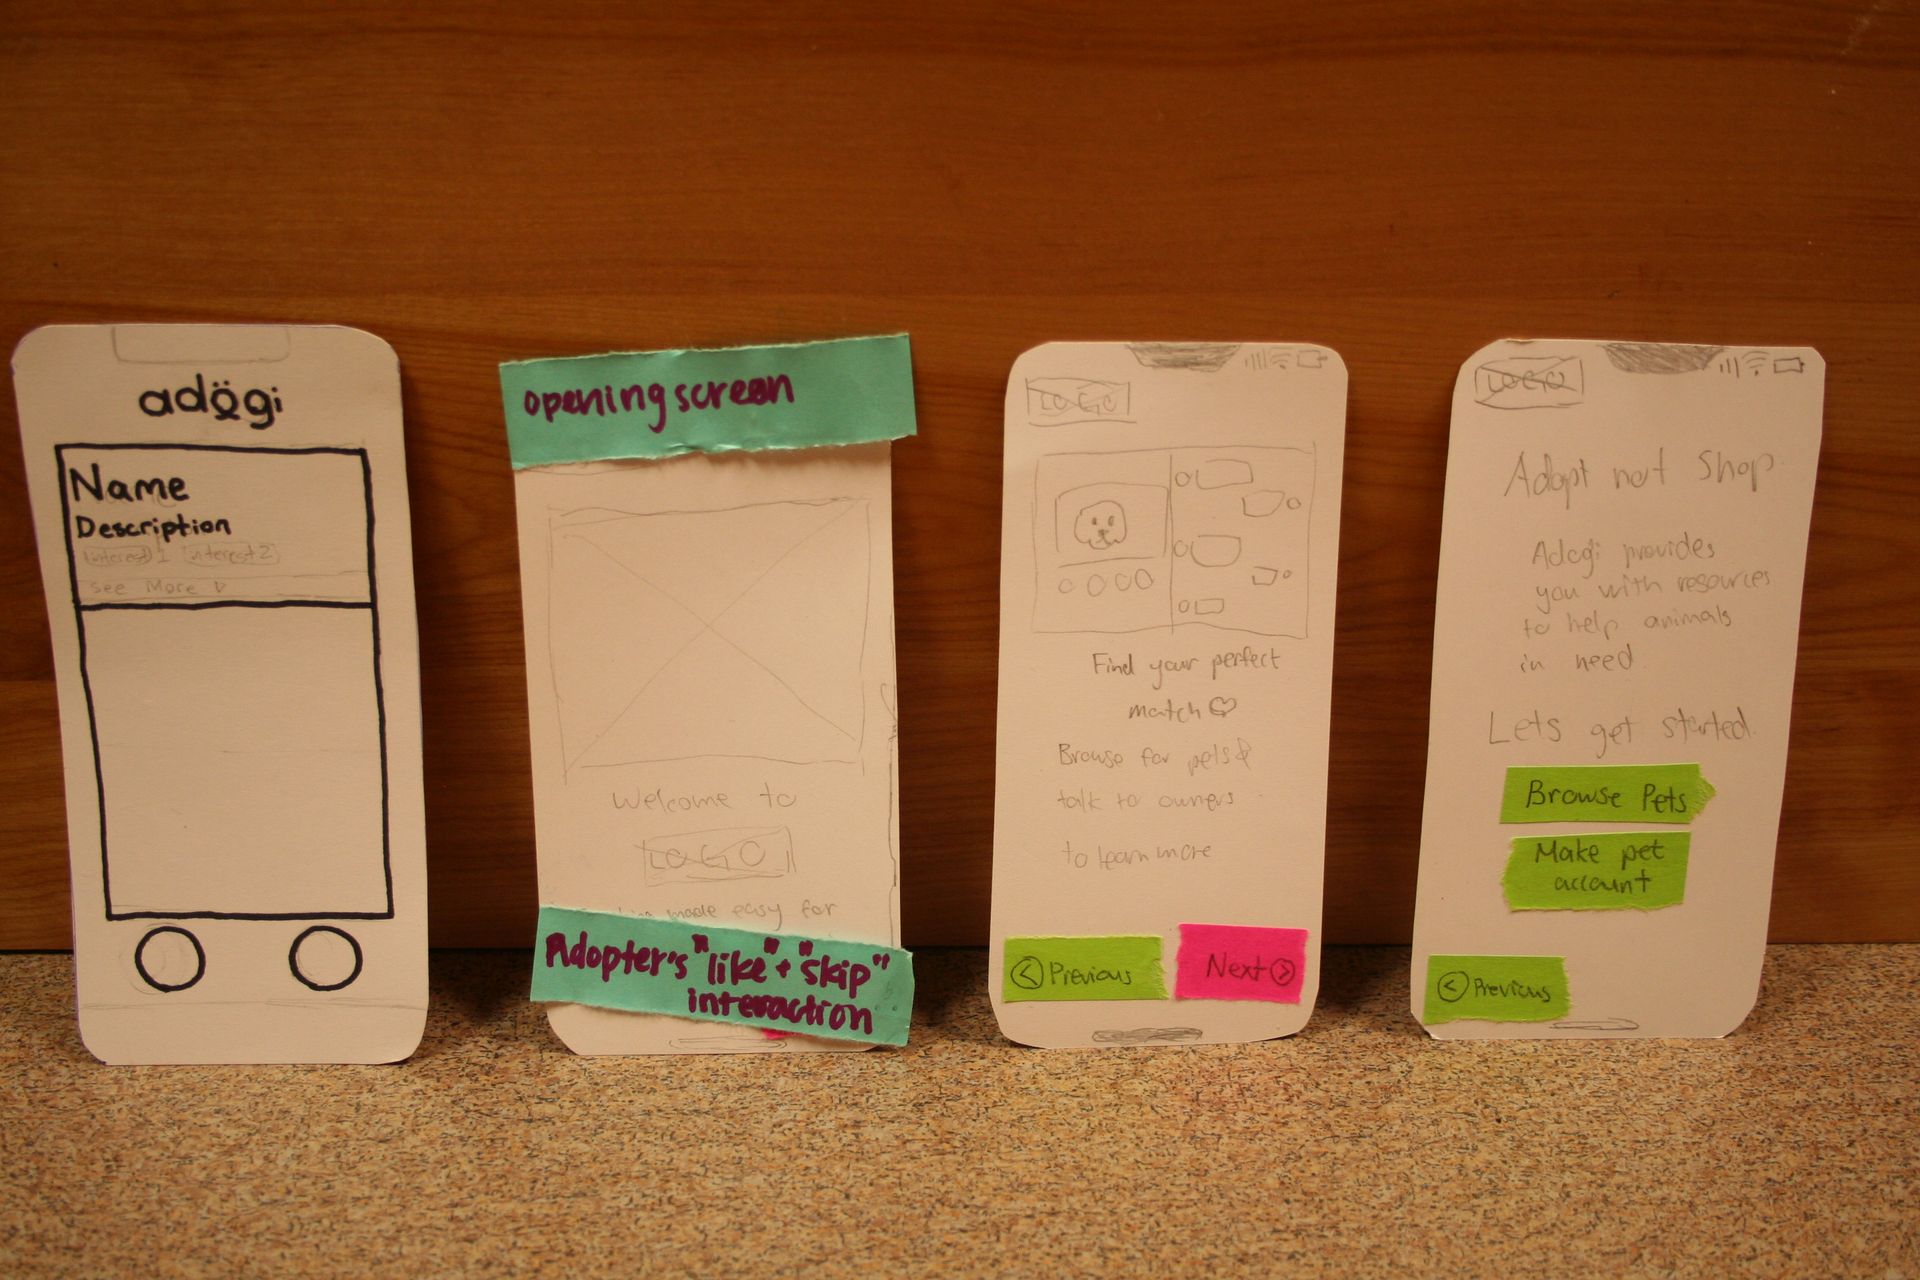 adögi
Name
Description
interest 1 interest 2
See More V
opening screen
Welcome to
LOGO
made easy for
Adopter's "like" + "skip"
interaction
LOGO
Find your perfect
match ♡
Browse for pets &
talk to owners
to learn more
< Previous
Next >
LOGO
Adopt not Shop
Adogi provides
you with resources
to help animals
in need
Lets get started
Browse Pets
Make pet
account
< Previous